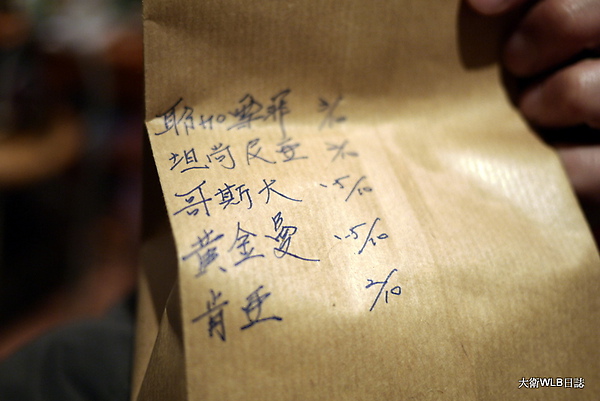 耶加雪菲 3/10
坦尚尼亞 2/10
哥斯大 1.5/10
黃金曼 1.5/10
肯亞 2/10
大衛WLB日誌